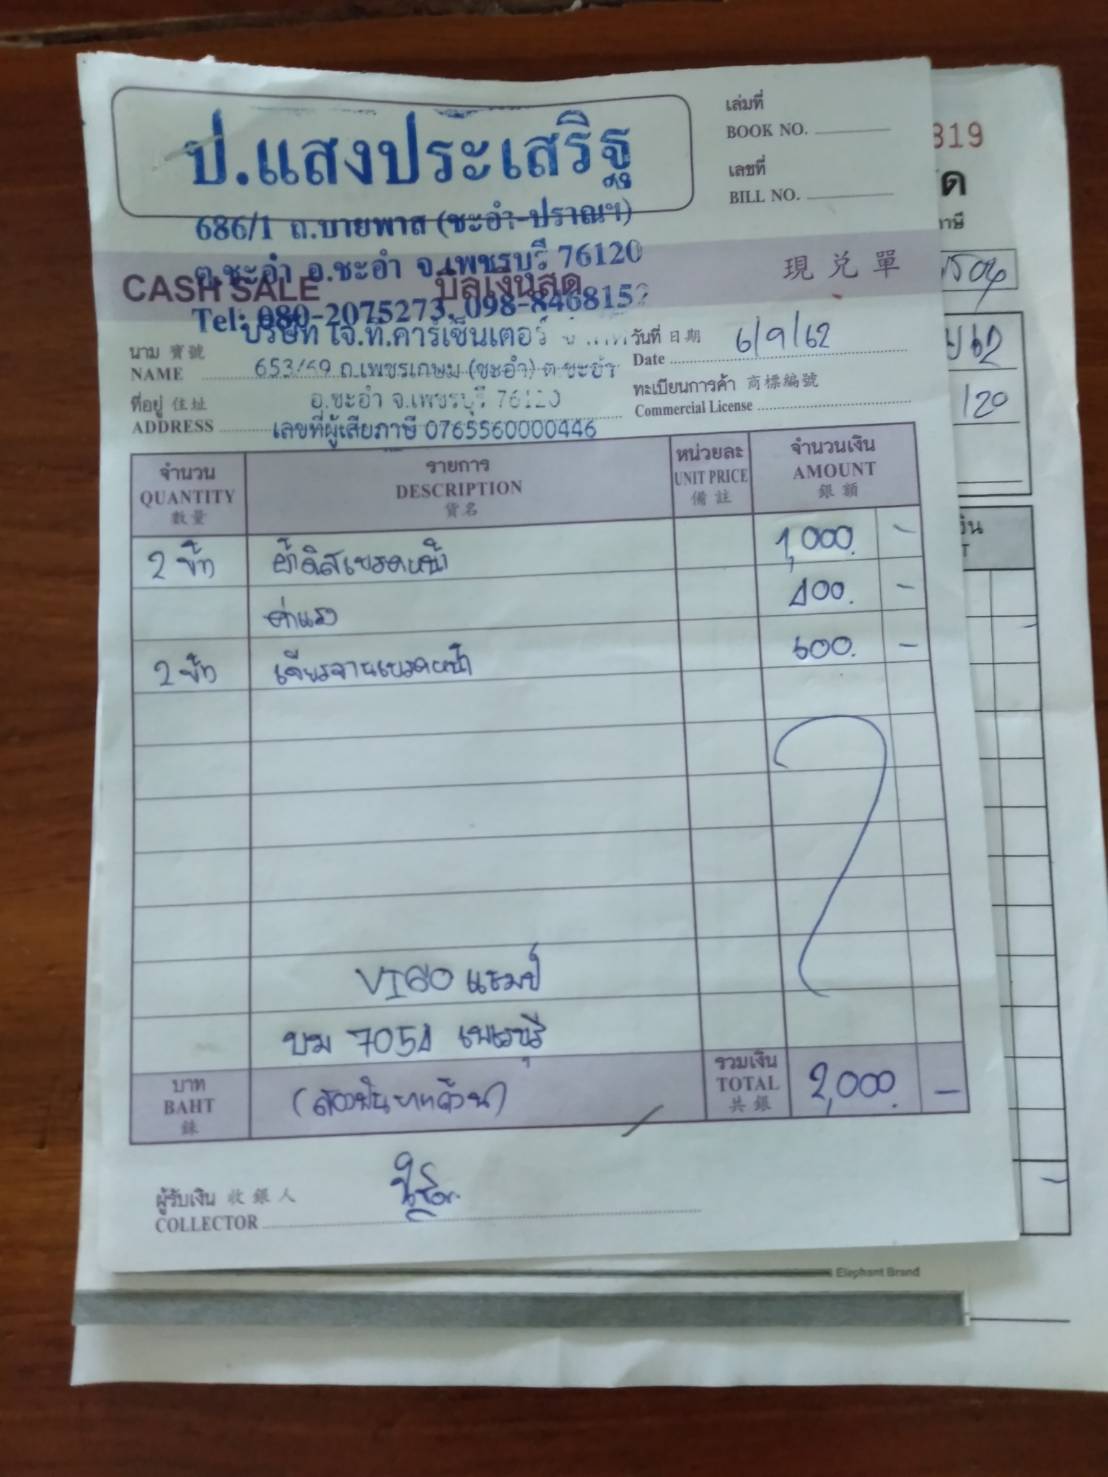 ป.แสงประเสริฐ
686/1 ถ.บายพาส (ชะอำ-ปราณฯ)
ต.ชะอำ อ.ชะอำ จ.เพชรบุรี 76120
Tel: 080-2075273, 098-8468152
เล่มที่
BOOK NO.
เลขที่
BILL NO.
319
CASH SALE บิลเงินสด 現兌單
บริษัท โจ.ที.คาร์เซ็นเตอร์
วันที่ 日期 Date 6/9/62
นาม 寳號 NAME 653/59 ถ.เพชรเกษม (ชะอำ) ต.ชะอำ
ที่อยู่ 住址 ADDRESS อ.ชะอำ จ.เพชรบุรี 76120
เลขที่ผู้เสียภาษี 0765560000446
ทะเบียนการค้า 商標編號
Commercial License
จำนวน QUANTITY 數量 รายการ DESCRIPTION 貨名 หน่วยละ UNIT PRICE 備註 จำนวนเงิน AMOUNT 銀額
2 ข้าง ผ้าดิสเบรคหน้า 1,000. -
ค่าแรง 400. -
2 ข้าง เจียรจานเบรคหน้า 600. -
VIGO แชมป์
บม 7054 เพชรบุรี
บาท BAHT 銖 (สองพันบาทถ้วน) รวมเงิน TOTAL 共銀 2,000. -
ผู้รับเงิน 收銀人
COLLECTOR
Elephant Brand
120